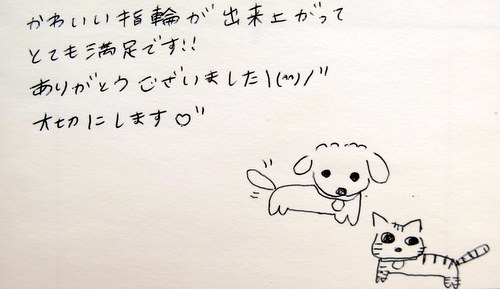 かわいい指輪が出来上がって
とても満足です!!
ありがとうございました\(^^)/"
大切にします♡"